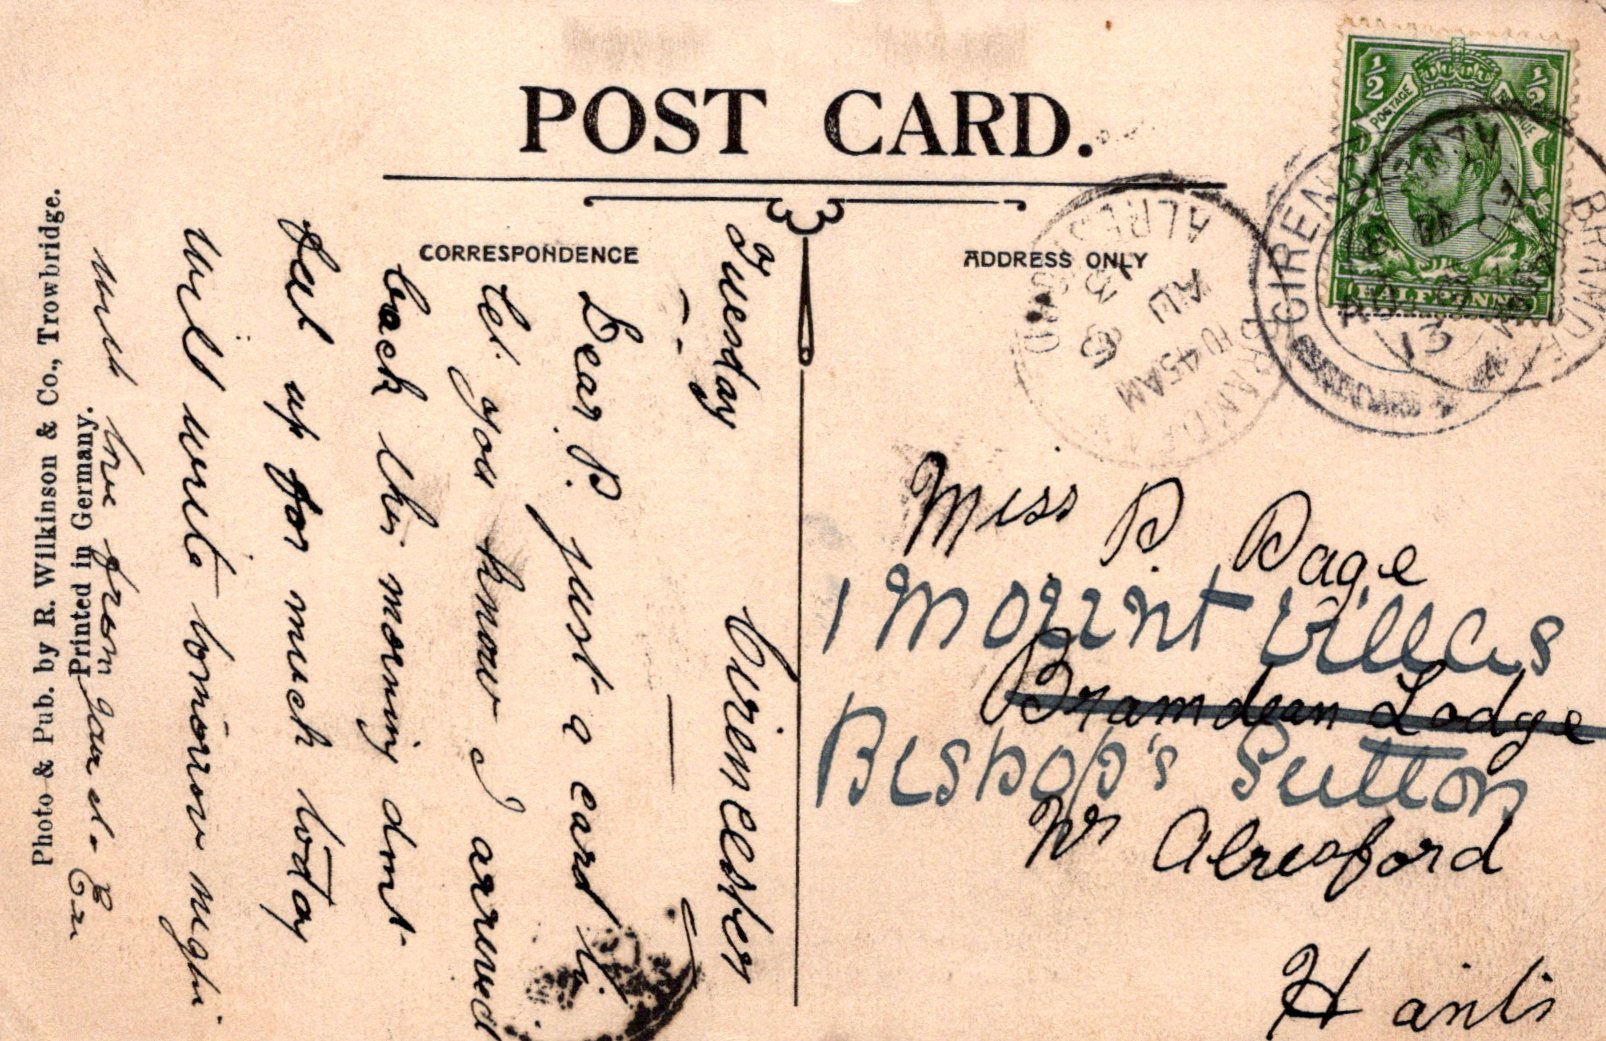 POST CARD.
CORRESPONDENCE
ADDRESS ONLY
½ ½
POSTAGE REVENUE
HALFPENNY
CIRENCESTER
AU
13
BRAMDEAN
ALRESFORD
10 45 AM
AU
13
Tuesday Cirencester
Dear P. just a card to
let you know I arrived
back this morning dont
feel up for much today
will write tomorrow night
with love from
Miss P. Page
1 Mount Villas
Bramdean Lodge
Bishop's Sutton
Nr Alresford
Hants
Photo & Pub. by R. Wilkinson & Co., Trowbridge.
Printed in Germany.